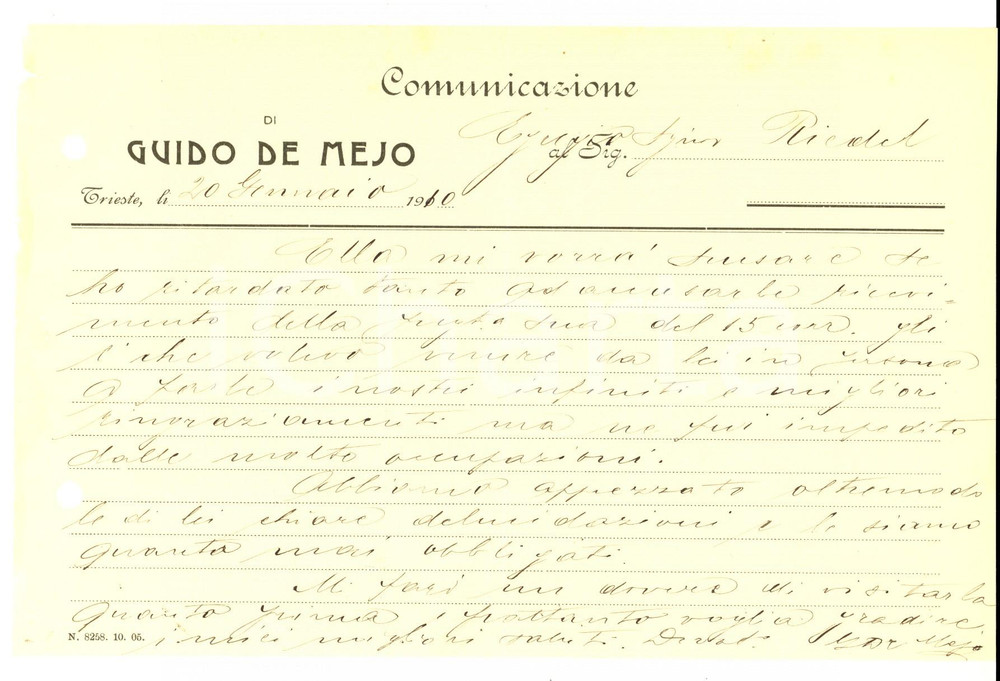 Comunicazione
DI
GUIDO DE MEJO
Egregio Signor Riedel
al Sig.
Trieste, li 20 Gennaio 1910
Ella mi vorrà scusare se
ho ritardato tanto ad accusarle ricevi-
mento della sua del 15 corr. gli
è che volevo venire da lei in persona
a farle i nostri infiniti e migliori
ringraziamenti ma ne fui impedito
dalle molte occupazioni.
Abbiamo apprezzato oltremodo
le di lei chiare delucidazioni e le siamo
quanto mai obbligati.
Mi farò un dovere di visitarla
quanto prima e frattanto voglia gradire
i miei migliori saluti. Devot. GDe Mejo
N. 8258. 10. 05.